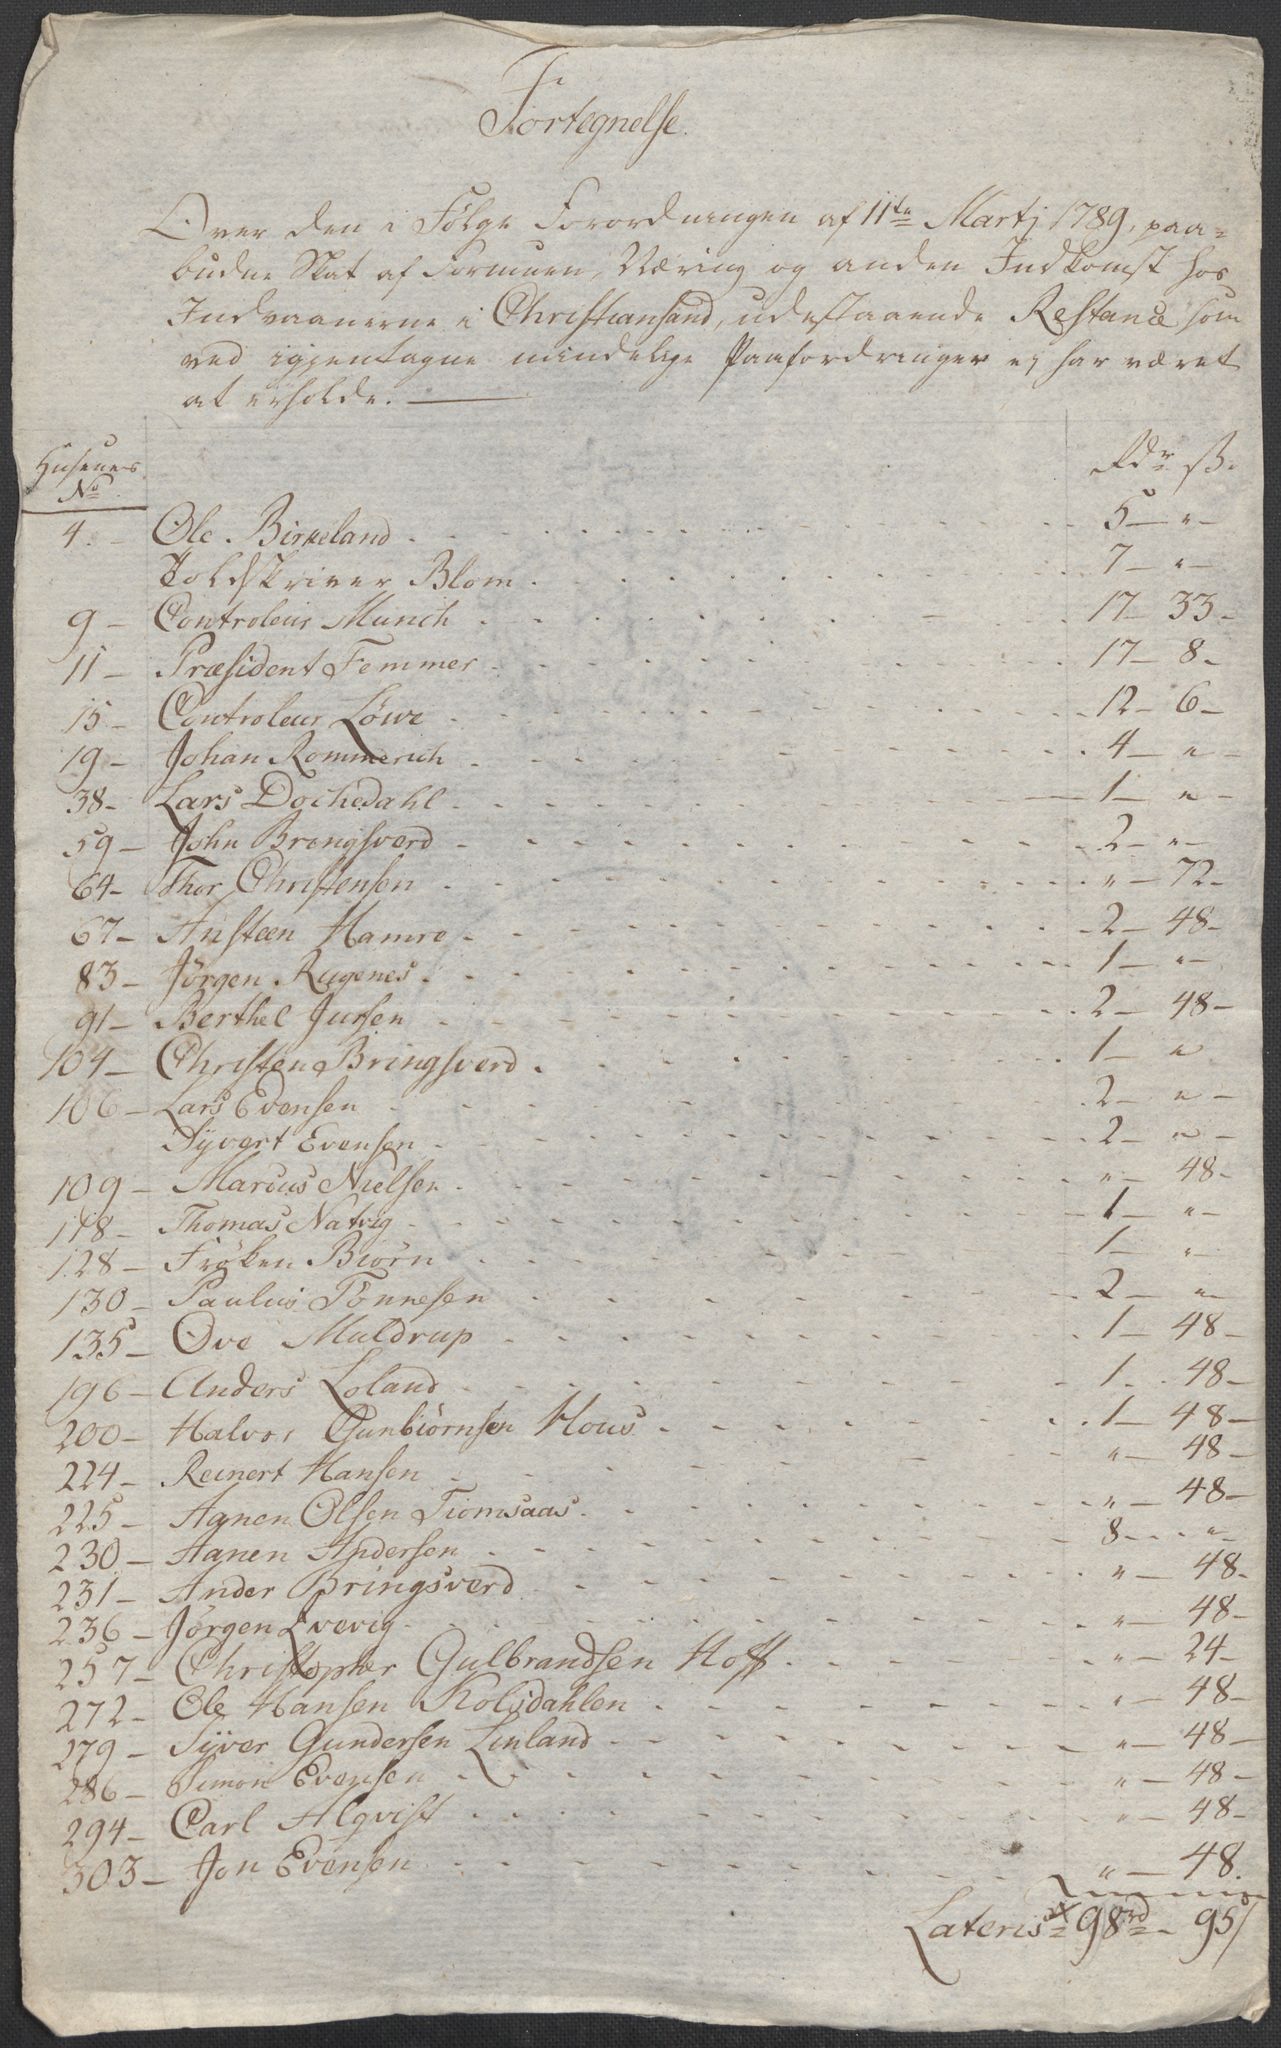 Fortegnelse.
Over den i Følge Forordningen af 11te Martj 1789, paa=
budne Skat af Formuen, Næring og anden Indkomst hos
Indvaanerne i Christiansand, udestaaende Restance som
ved igjentagne mindelige Paafordringer ej har været
at erholde.
Husenes No Rdr ß.
4. - Ole Birkeland 5 - " -
Toldskriver Blom 7 - " -
9 - Controleur Munch 17 - 33 -
11 - Præsident Femmer 17 - 8 -
15 - Controleur Löwe 12 - 6 -
19 - Johan Rommerich 4 - " -
38 - Lars Dochedahl 1 - " -
59 - John Brengsverd 2 - " -
64 - Thor Christensen " - 72 -
67 - Austeen Hamre 2 - 48 -
83 - Jörgen Rugenes 1 - " -
91 - Berthel Jursen 2 - 48 -
104 - Christen Bringsverd 1 - "
106 - Lars Evensen 2 - " -
Syvert Evensen 2 - " -
109 - Marcus Nielsen " - 48 -
118 - Thomas Natvig 1 - " -
128 - Frøken Biørn 1 - " -
130 - Paulus Tönnesen 2 - " -
135 - Ove Muldrup 1 - 48 -
196 - Anders Loland 1 - 48 -
200 - Halvor Gunbiörnsen Hous 1 - 48 -
224 - Reinert Hansen " - 48 -
225 - Aanen Olsen Tiomsaas " - 48 -
230 - Aanen Andersen 8 - " -
231 - Ander Bringsverd " - 48 -
236 - Jörgen Qvevig " - 48 -
257 - Christopher Gulbrandsen Hoff " - 24 -
272 - Ole Hansen Kolsdahlen " - 48 -
279 - Syver Gundersen Linland " - 48 -
286 - Simon Evensen " - 48 -
294 - Carl Alqvist " - 48 -
303 - Jon Evensen " - 48.
Lateris 98rd - 95ß